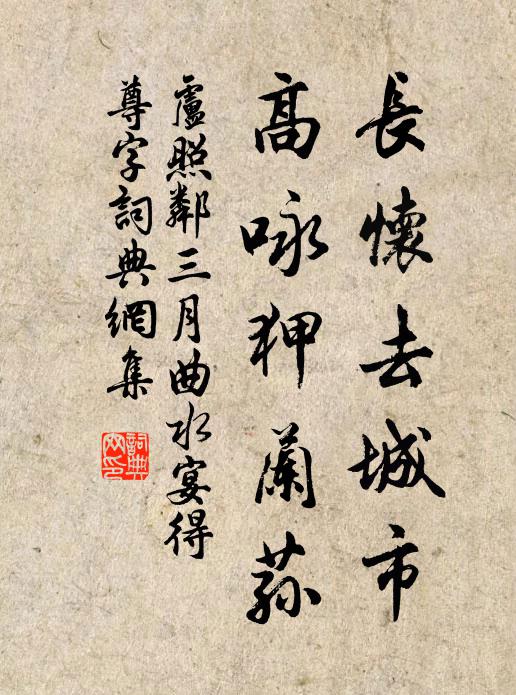 長懷去城市
高咏狎蘭蓀
盧照鄰三月曲水宴得
尊字詞典網集
詞典網印